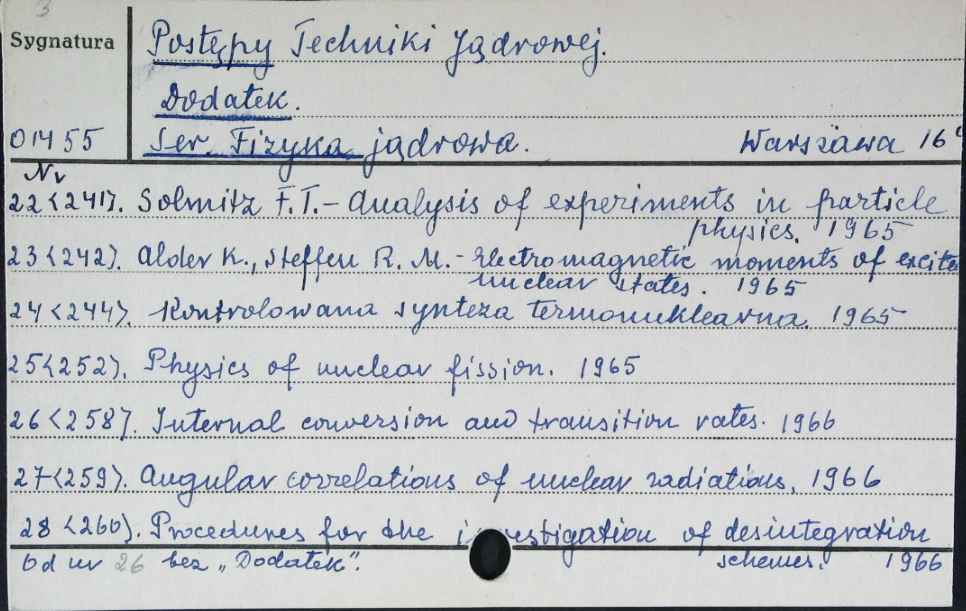 3
Sygnatura
Postępy Techniki Jądrowej.
Dodatek.
01455
Ser. Fizyka jądrowa. Warszawa 16°
Nr
22<241>. Solmitz F.T. - Analysis of experiments in particle
physics. 1965
23<242>. Alder K., Steffen R. M. - Electromagnetic moments of excited
nuclear states. 1965
24<244>. Kontrolowana synteza termonuklearna. 1965
25<252>. Physics of nuclear fission. 1965
26<258>. Internal conversion and transition rates. 1966
27<259>. Angular correlations of nuclear radiations. 1966
28<260>. Procedures for the investigation of desintegration
schemes. 1966
Od nr 26 bez „Dodatek".